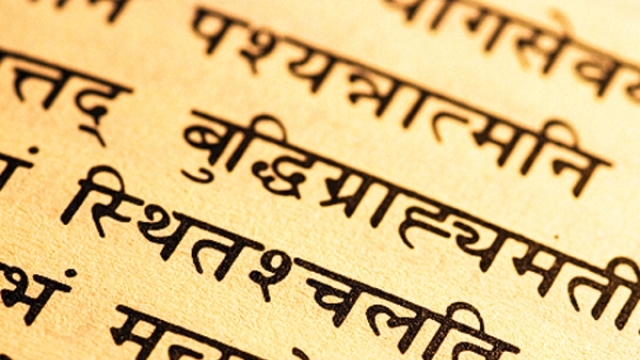 गसेव
पश्यन्नात्मनि
त्तद् बुद्धिग्राह्यमती
स्थितश्चलति
भं म